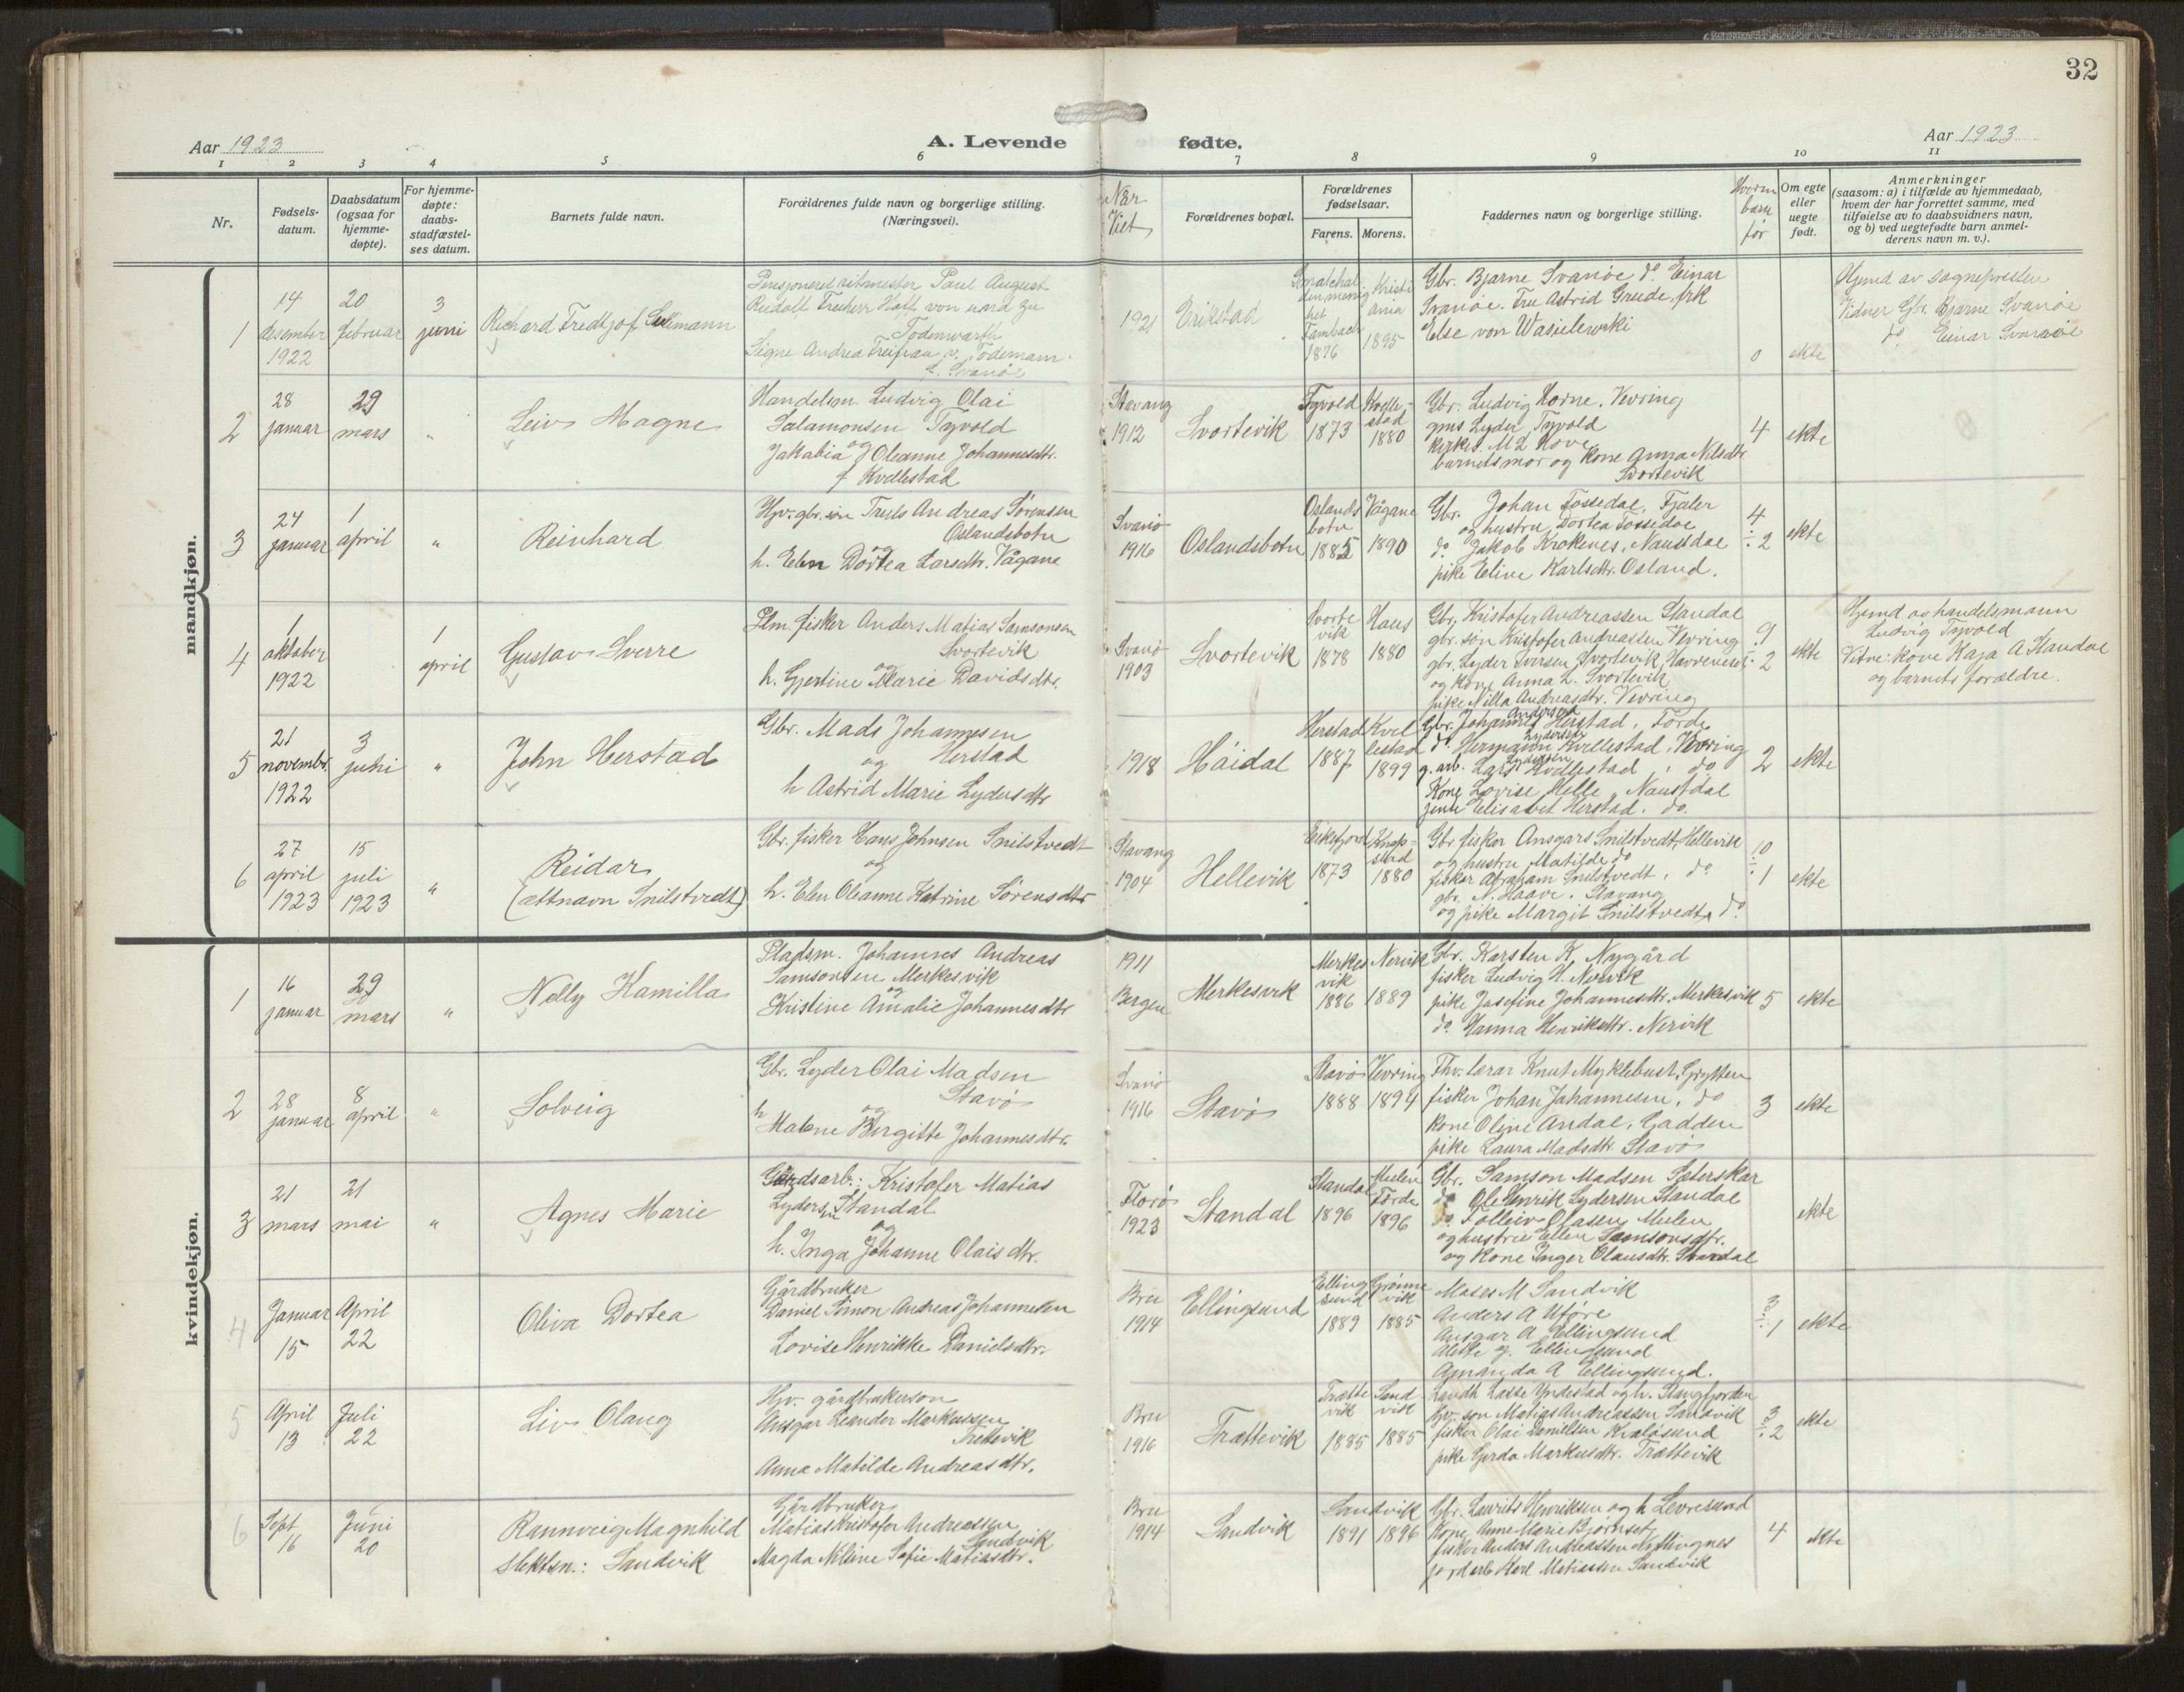 32
Aar 1923
A. Levende fødte.
Aar 1923
1 2 3 4 5 6 7 8 9 10 11
Nr.
Fødsels-
datum.
Daabsdatum
(ogsaa for
hjemme-
døpte).
For hjemme-
døpte:
daabs-
stadfæstel-
ses datum.
Barnets fulde navn.
Forældrenes fulde navn og borgerlige stilling.
(Næringsvei).
Nær
Viet
Forældrenes bopæl.
Forældrenes
fødselsaar.
Farens. Morens.
Faddernes navn og borgerlige stilling.
Hvorm
barn
før
Om egte
eller
uegte
født.
Anmerkninger
(saasom: a) i tilfælde av hjemmedaab,
hvem der har forrettet samme, med
tilføielse av to daabsvidners navn,
og b) ved uegtefødte barn anmel-
derens navn m. v.).
mandkjøn.
1
14
desember
1922
20
februar
3
juni
Richard Fredtjof
Pensjoneret ritmester Paul August
Rudolf Freiherr Wolff von und zu
Todenwarth
Signe Andrea Freifrau v. Todemann
f. Svanøe
1921
Erikstad
Tambach
1876
Kristi
ania
1895
Gbr. Bjarne Svanøe do Einar
Svanøe. Fru Astrid Grude, frk
Else von Wasielewski
0
ekte
Hjemd av sognepresten
Vidner Gbr. Bjarne Svanøe
do Einar Svanøe
2
28
januar
29
mars
"
Leiv Magne
Handelsm. Ludvig Olai
Salamonsen Tyvold
og
Jakobia Oleanne Johannesdtr.
f Kvellestad
Stavang
1912
Svortevik
Tyvold
1873
Kvelle-
stad
1880
Gbr. Ludvig Horne, Vevring
gms Lyder Tyvold
kirkes. M L Hove
barnets mor og kone Anna Nilsdtr
Svortevik
4
ekte
3
24
januar
1
april
"
Reinhard
Hjv. gbr. søn Truls Andreas Sørensen
Oslandsbotn
og
h. Elen Dortea Larsdtr. Vågane
Svanø
1916
Oslandsbotn
Oslands
botn
1885
Vågane
1890
Gbr. Johan Fossedal, Fjaler
og hustru Dortea Fossedal
do Jakob Krokenes, Naustdal
pike Eline Karlsdtr. Osland.
4
÷ 2
ekte
4
1
oktober
1922
1
april
Gustav Sverre
Plm. fisker Anders Matias Samsonsen
Svortevik
og
h. Gjertine Marie Davidsdtr.
Svanø
1903
Svortevik
Svorte
vik
1878
Haus
1880
Gbr. Kristofer Andreassen Standal
gbr. søn Kristofer Andreassen Vevring
gbr. Lyder Iversen Svortevik,
og kone Anna L. Svortevik
pike Nilla Andreasdtr. Vevring
9
÷ 2
ekte
Hjemd av handelsmann
Ludvig Tyvold
Vitne: kone Kaja A Standal
og barnets forældre.
5
21
novembr.
1922
3
juni
"
John Herstad
Gbr. Mads Johannesen
Herstad
og
h Astrid Marie Lydersdtr
1918
Håidal
Herstad
1887
Kvel
lestad
1899
Andersen
Gbr. Johannes Herstad, Førde
Lydersen
do Hermann Kvellestad, Vevring
Lydersen
g. arb. Lars Kvellestad, do
Kone Lovise Helle, Naustdal
jente Elisabet Herstad, do
2
ekte
6
27
april
1923
15
juli
1923
"
Reidar
(ættnavn Snilstvedt)
Gbr. fisker Hans Johnsen Snilstvedt
og
h. Elen Oleanne Katrine Sørensdtr
Stavang
1904
Hellevik
Eikefjord
1873
Knap-
stad
1880
Gbr. fisker Ansgars Snilstvedt, Hellevik
og hustru Matilde do
fisker Abraham Snilstvedt, do
gbr. N. Haave, Stavang
og pike Margit Snilstvedt, do
10
÷ 1
ekte
kvindekjøn.
1
16
januar
29
mars
"
Nelly Kamilla
Pladsm. Johannes Andreas
Samsonsen Merkesvik
og
Kristine Amalie Johannesdtr
1911
Bergen
Merkesvik
Merkes
vik
1886
Nervik
1889
Gbr. Karsten K. Nygård
fisker Ludvig H. Nervik
pike Josefine Johannesdtr. Merkesvik
do Hanna Henriksdtr. Nervik
5
ekte
2
28
januar
8
april
"
Solveig
Gbr. Lyder Olai Madsen
Stavø
og
h Malene Bergitte Johannesdtr.
Svanø
1916
Stavø
Stavø
1888
Vevring
1894
Fhv. lærar Knut Myklebust, Grytten
fisker Johan Johannesen, do
kone Oline Andal, Gadden
pike Laura Madsdtr Stavø
3
ekte
3
21
mars
21
mai
"
Agnes Marie
Gårdsarb.: Kristofer Matias
Lydersen Standal
og
h. Inga Johanne Olaisdtr.
Florø
1923
Standal
Standal
1896
Mulen
Førde
1896
Gbr. Samson Madsen Sæterskar
do Ole Henrik Lydersen Standal
do Folleiv Olassen Mulen
og hustru Ellen Samsonsdtr.
og kone Inger Olausdtr. Standal
ekte
4
Januar
15
April
22
Oliva Dortea
Gårdbruker
Daniel Simon Andreas Johannesen
Lovise Henrikke Danielsdtr.
Bru
1914
Ellingsund
Elling
sund
1889
Grønne
vik
1885
Moses M Sandvik
Anders A Uføre
Ansgar A Ellingsund
Alette J. Ellingsund
Amanda A Ellingsund.
3
÷ 1
ekte
5
April
13
Juli
22
Liv Olaug
Hjv. gårdbrukerson
Ansgar Leander Markussen
Trettevik
Anna Matilde Andreasdtr.
Bru
1916
Trættevik
Trætte
vik
1885
Sand
vik
1885
Landh. Lasse Yndestad og h. Stangfjorden
hjv. søn Matias Andreassen Sandvik
fisker Olai Danielsen
pike Gerda Markusdtr. Trættevik
3
÷ 2
ekte
6
Sept
16
Juni
20
Rannveig Magnhild
slektsn.: Sandvik
Gårdbruker
Matias Kristofer Andreassen
Sandvik
Magda Niline Sofie Matiasdtr.
Bru
1914
Sandvik
Sandvik
1891 1896
Gbr. Laurits Henriksen og h Levresund
Kone Anne Marie Bjørnset
fisker Anders Andreassen
jordarb Karl Matiassen Sandvik
4
ekte